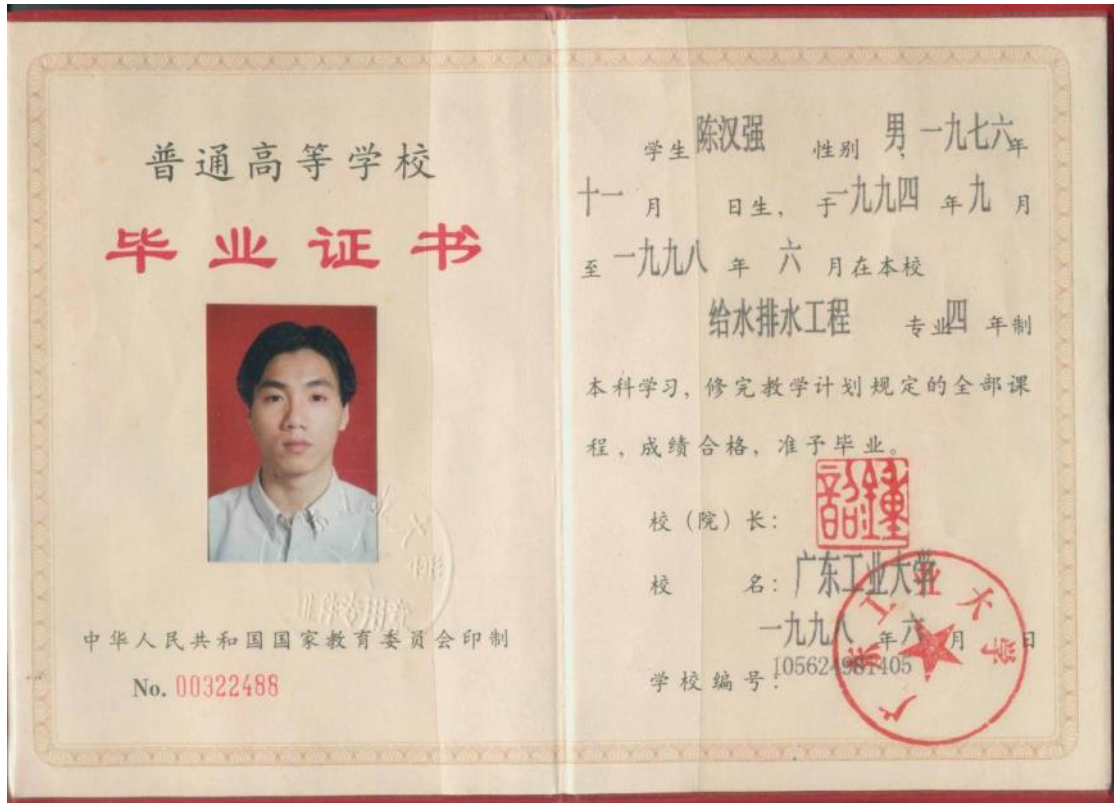 普通高等学校
毕业证书
中华人民共和国国家教育委员会印制
No. 00322488
学生 陈汉强 性别 男、一九七六年
十一月 日生，于一九九四年九月
至一九九八年六月在本校
给水排水工程 专业四年制
本科学习，修完教学计划规定的全部课
程，成绩合格，准予毕业。
校（院）长：
校 名：广东工业大学
一九九八年六月 日
学校编号：105624981405
广东工业大学